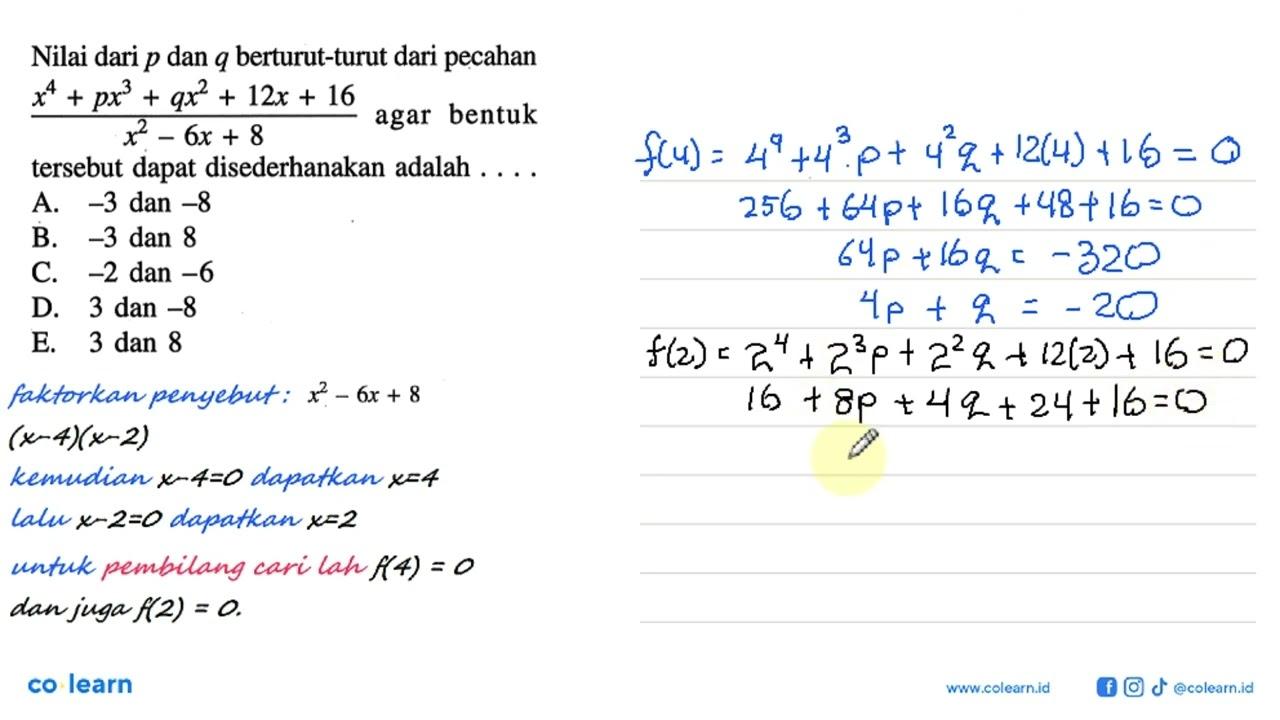 Nilai dari p dan q berturut-turut dari pecahan
x⁴ + px³ + qx² + 12x + 16
x² – 6x + 8
agar bentuk
tersebut dapat disederhanakan adalah . . . .
A. –3 dan –8
B. –3 dan 8
C. –2 dan –6
D. 3 dan –8
E. 3 dan 8
faktorkan penyebut : x² – 6x + 8
(x-4)(x-2)
kemudian x-4=0 dapatkan x=4
lalu x-2=0 dapatkan x=2
untuk pembilang cari lah f(4) = 0
dan juga f(2) = 0.
f(4) = 4⁴ + 4³.p + 4²q + 12(4) + 16 = 0
256 + 64p + 16q + 48 + 16 = 0
64p + 16q = -320
4p + q = -20
f(2) = 2⁴ + 2³p + 2²q + 12(2) + 16 = 0
16 + 8p + 4q + 24 + 16 = 0
co learn
www.colearn.id
@colearn.id